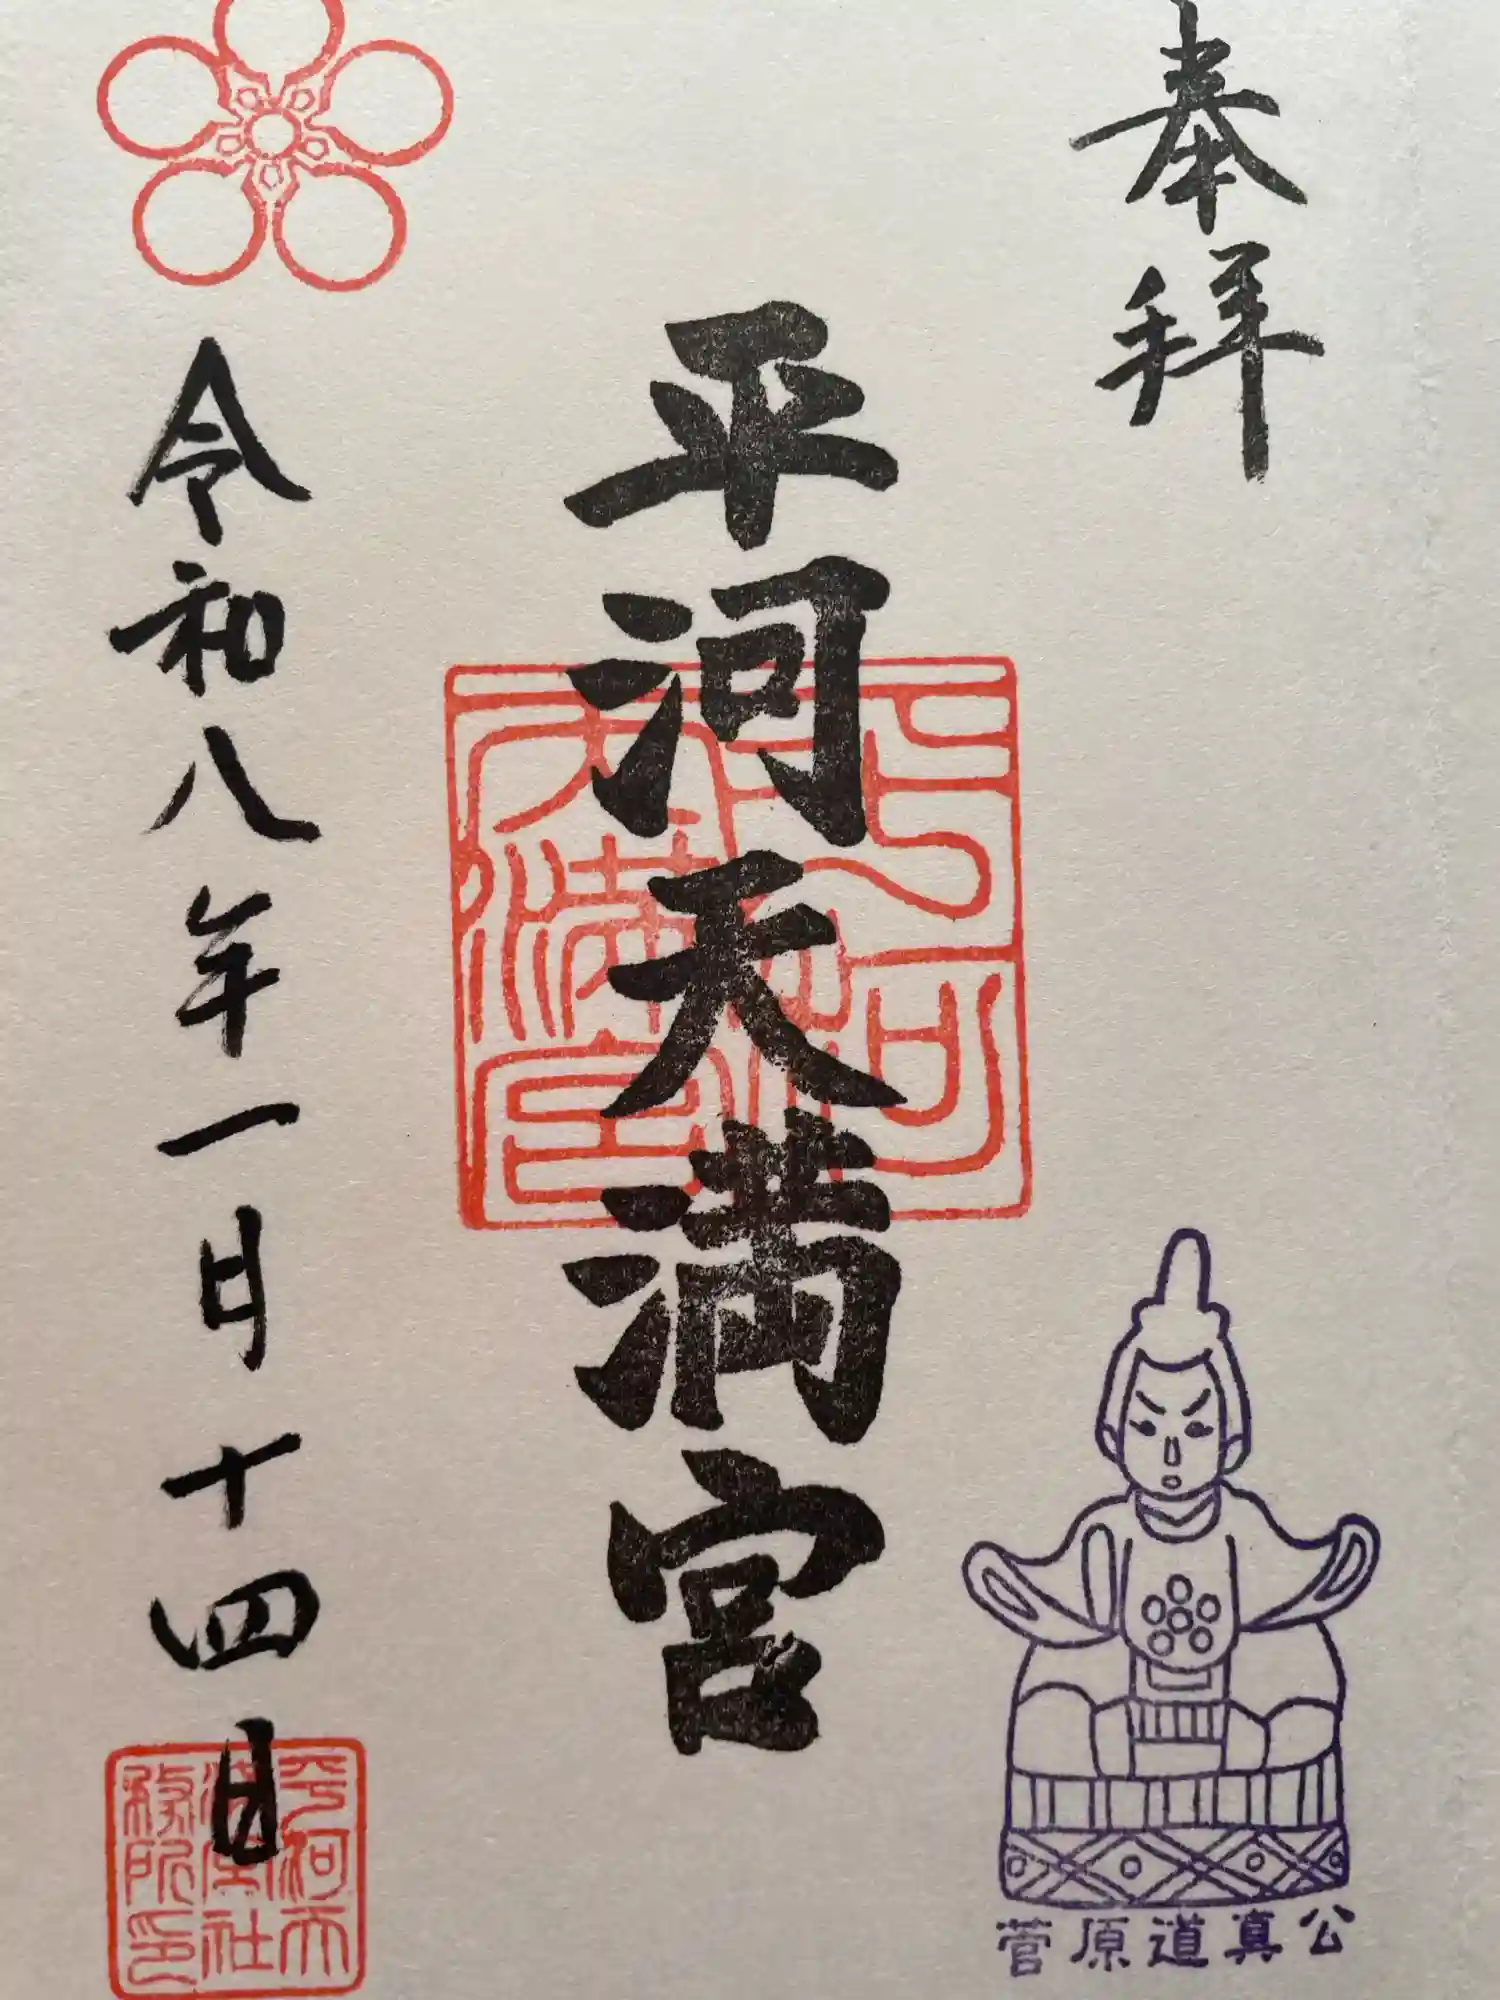 奉拝
平河天満宮
令和八年一月十四日
菅原道真公
平河天
満宮社
務所印